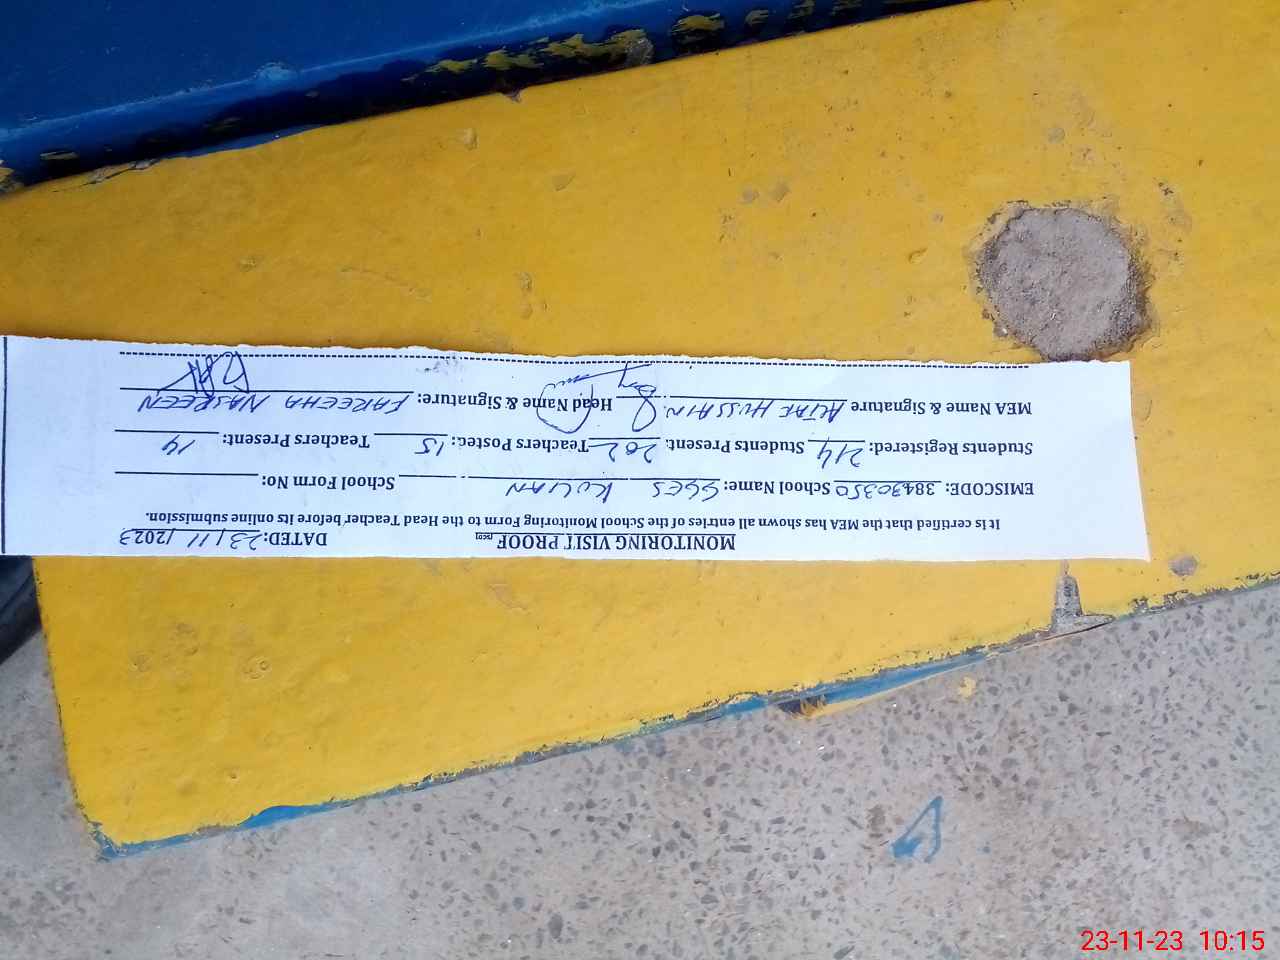 MONITORING VISIT PROOF DATED: 23/11/2023
It is certified that the MEA has shown all entries of the School Monitoring Form to the Head Teacher before its online submission.
EMISCODE: 38430350 School Name: GGES KULIAN School Form No:
Students Registered: 214 Students Present: 202 Teachers Posted: 15 Teachers Present: 14
MEA Name & Signature HUSSAIN Head Name & Signature: FAREEHA NASREEN
23-11-23 10:15